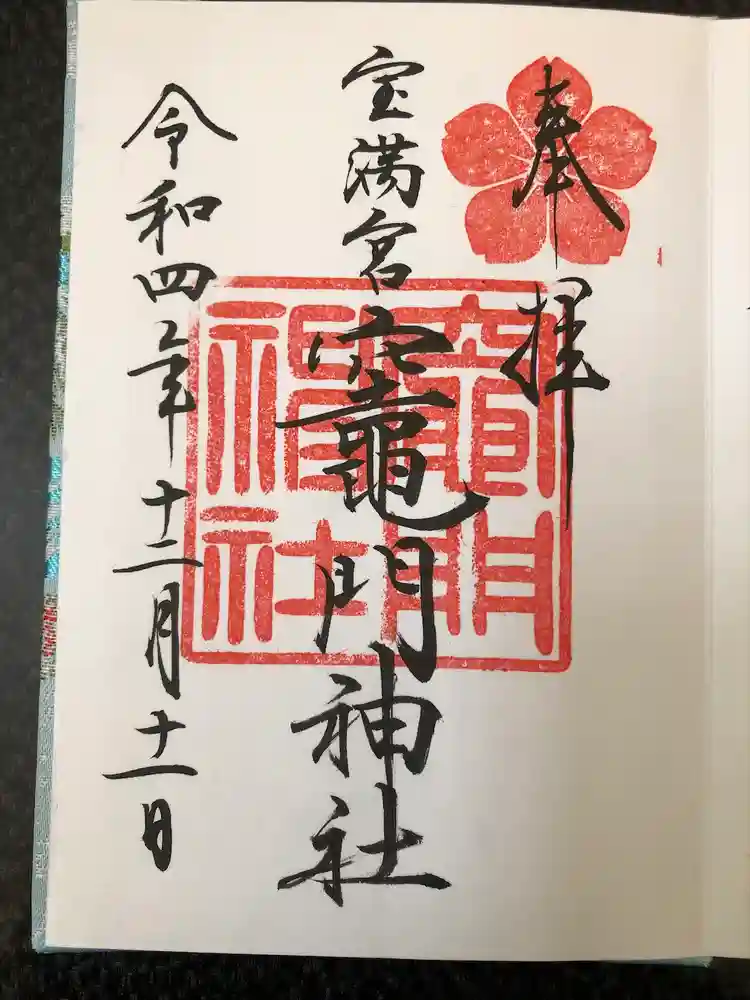 奉拝
宝満宮竈門神社
竈門
神社
令和四年十二月十一日